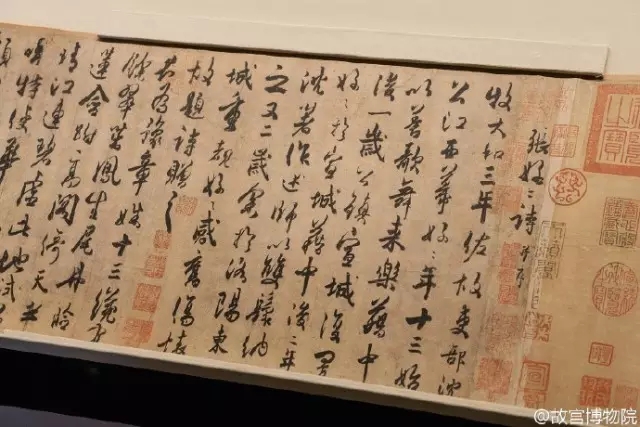 張好〻詩并序
牧大和三年佐故吏部沈
公江西幕好〻年十三始
以善歌舞來樂籍中
後一歲公鎮宣城復置
好〻於宣城籍中後二年
沈著作述師以雙鬟納
之又二歲余於洛陽東
城重覩好〻感舊傷懷
故題詩贈之
君為豫章姝十三纔有
餘翠茁鳳生尾丹臉
蓮含跗高閣倚天半
晴江連碧虛此地試
唱特使華
@故宫博物院